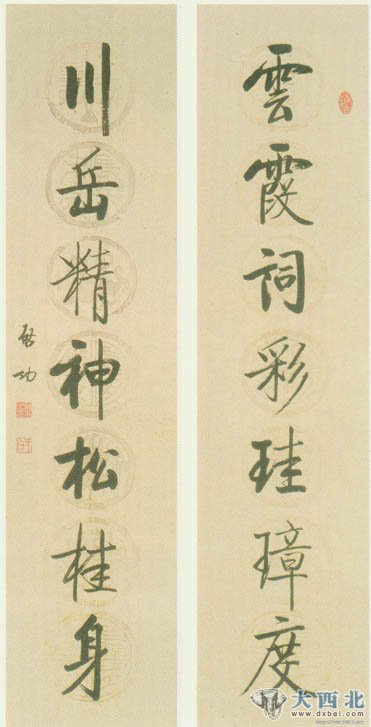 雲霞詞彩珪璋度
川岳精神松桂身
啓功
大西北
www.dxbei.com